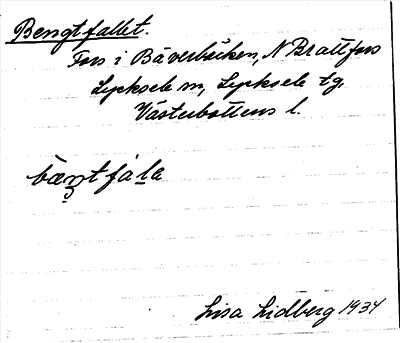 Bengtfallet.
Fors i Bäverbäcken, N Brattfors
Lycksele sn, Lycksele tg,
Västerbottens l.
bæŋtfala
Lisa Lidberg 1934